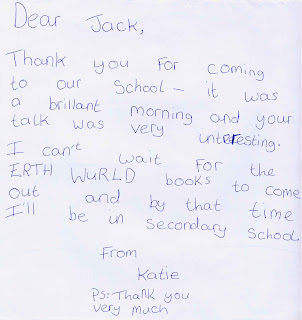 Dear Jack,
Thank you for coming
to our School - it was
a brillant morning and your
talk was very unteresting.
I can't wait for the
ERTH WURLD books to come
out and by that time
I'll be in secondary school
From
Katie
PS: Thank you
very much